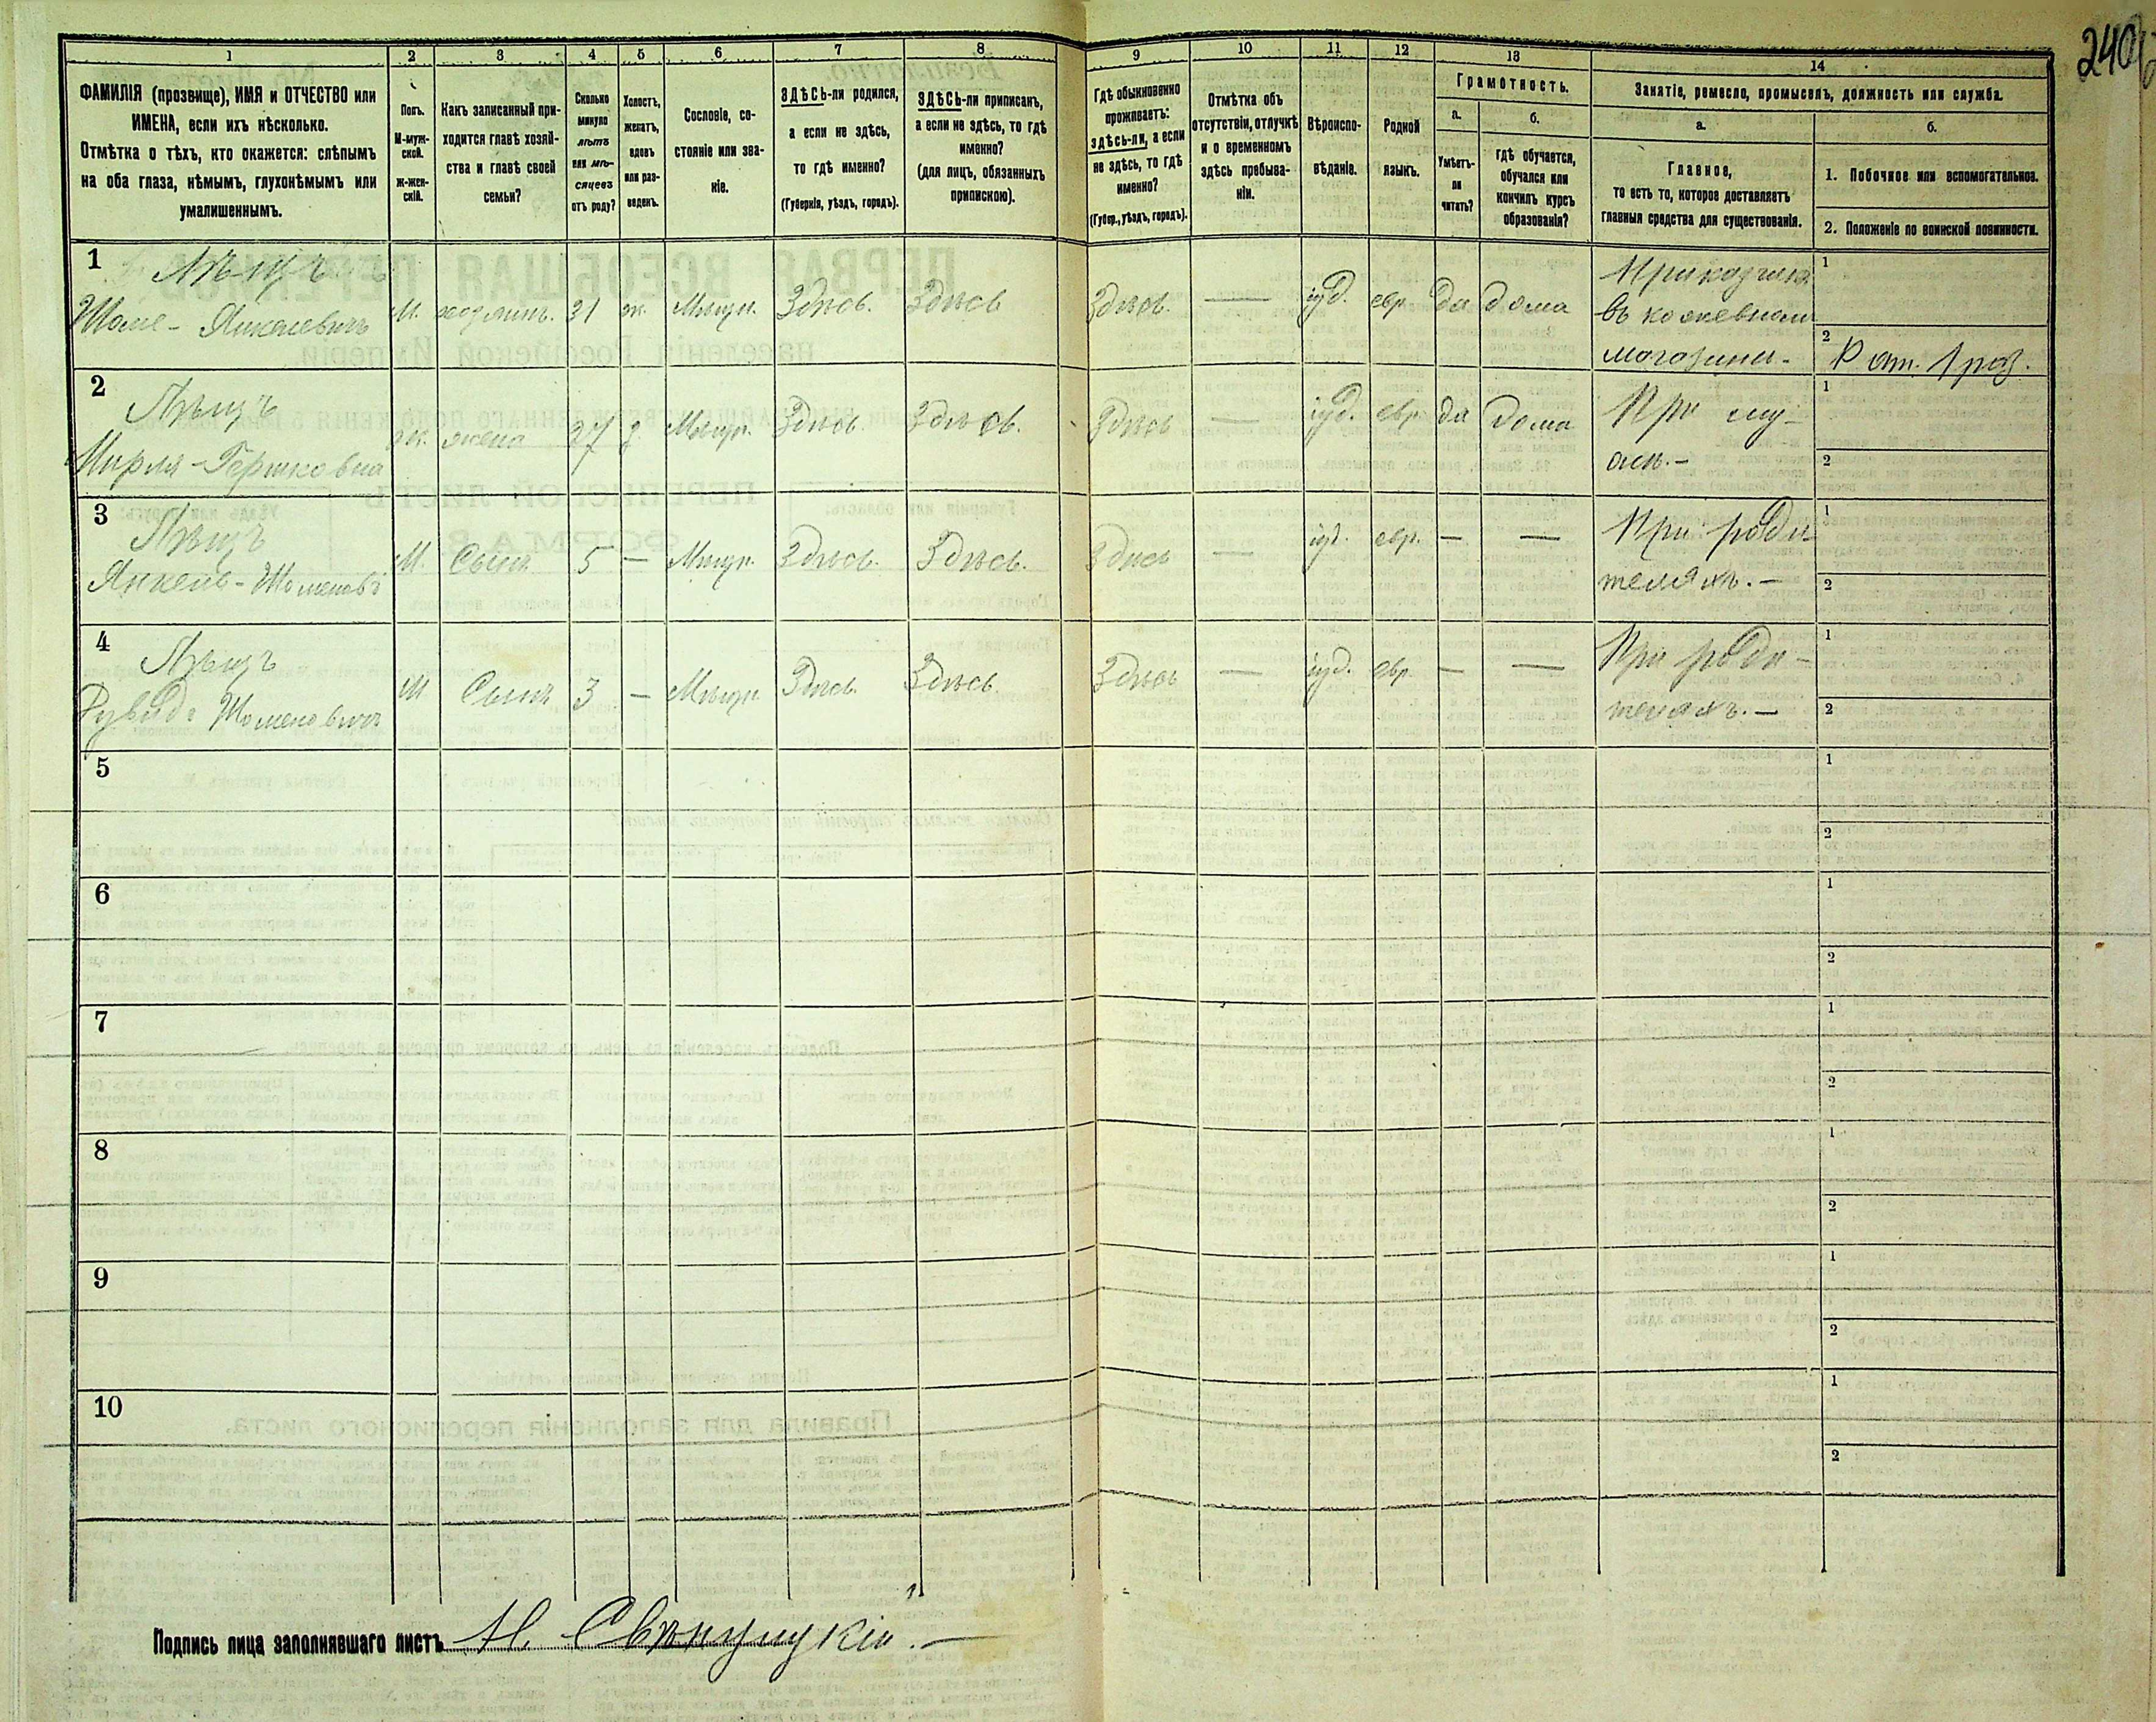 240
1
2
3
4
5
6
7
8
ФАМИЛІЯ (прозвище), ИМЯ и ОТЧЕСТВО или
ИМЕНА, если ихъ нѣсколько.
Отмѣтка о тѣхъ, кто окажется: слѣпымъ
на оба глаза, нѣмымъ, глухонѣмымъ или
умалишеннымъ.
Полъ.
М-муж-
ской.
Ж-жен-
скій.
Какъ записанный при-
ходится главѣ хозяй-
ства и главѣ своей
семьи?
Сколько
минуло
лѣтъ
или мѣ-
сяцевъ
отъ роду?
Холостъ,
женатъ,
вдовъ
или раз-
веденъ.
Сословіе, со-
стояніе или зва-
ніе.
ЗДѢСЬ-ли родился,
а если не здѣсь,
то гдѣ именно?
(Губернія, уѣздъ, городъ).
ЗДѢСЬ-ли приписанъ,
а если не здѣсь, то гдѣ
именно?
(для лицъ, обязанныхъ
припискою).
9
10
11
12
13
14
Гдѣ обыкновенно
проживаетъ:
здѣсь-ли, а если
не здѣсь, то гдѣ
именно?
(Губер., уѣздъ, городъ).
Отмѣтка объ
отсутствіи, отлучкѣ
и о временномъ
здѣсь пребыва-
ніи.
Вѣроиспо-
вѣданіе.
Родной
языкъ.
Грамотность.
а.
б.
Умѣетъ-
ли
читать?
гдѣ обучается,
обучался или
кончилъ курсъ
образованія?
Занятіе, ремесло, промыселъ, должность или служба.
а.
б.
Главное,
то есть то, которое доставляетъ
главныя средства для существованія.
1. Побочное или вспомогательное.
2. Положеніе по воинской повинности.
1
Шоме- Янкелевичъ
М.
31
ж.
Мѣщн.
Здѣсь.
Здѣсь
Здѣсь.
—
іуд.
евр.
да
дома
Приказчикъ
въ кожевномъ
магазинѣ.-
1
2
Р от. 1 раз.
2
Мирля-Гершковна
ж.
жена
27
З.
Мѣщн.
Здѣсь.
Здѣсь.
Здѣсь
—
іуд.
евр.
да
дома
При му-
жѣ.-
1
2
3
Янкель-Шомеловъ
М.
Сынъ
5
—
Мѣщн.
Здѣсь.
Здѣсь.
Здѣсь
—
іуд.
евр.
—
—
При роди
теляхъ.-
1
2
4
Рувидъ Шомеловичъ
М
Сынъ
3
—
Мѣщн
Здѣсь.
Здѣсь.
Здѣсь
—
іуд.
евр.
—
—
При роди-
теляхъ.-
1
2
5
1
2
6
1
2
7
1
2
8
1
2
9
1
2
10
1
2
Подпись лица заполнявшаго листъ